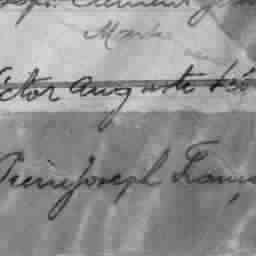 Clement
Marke
ictor Auguste Léo
Pierre Joseph Franç